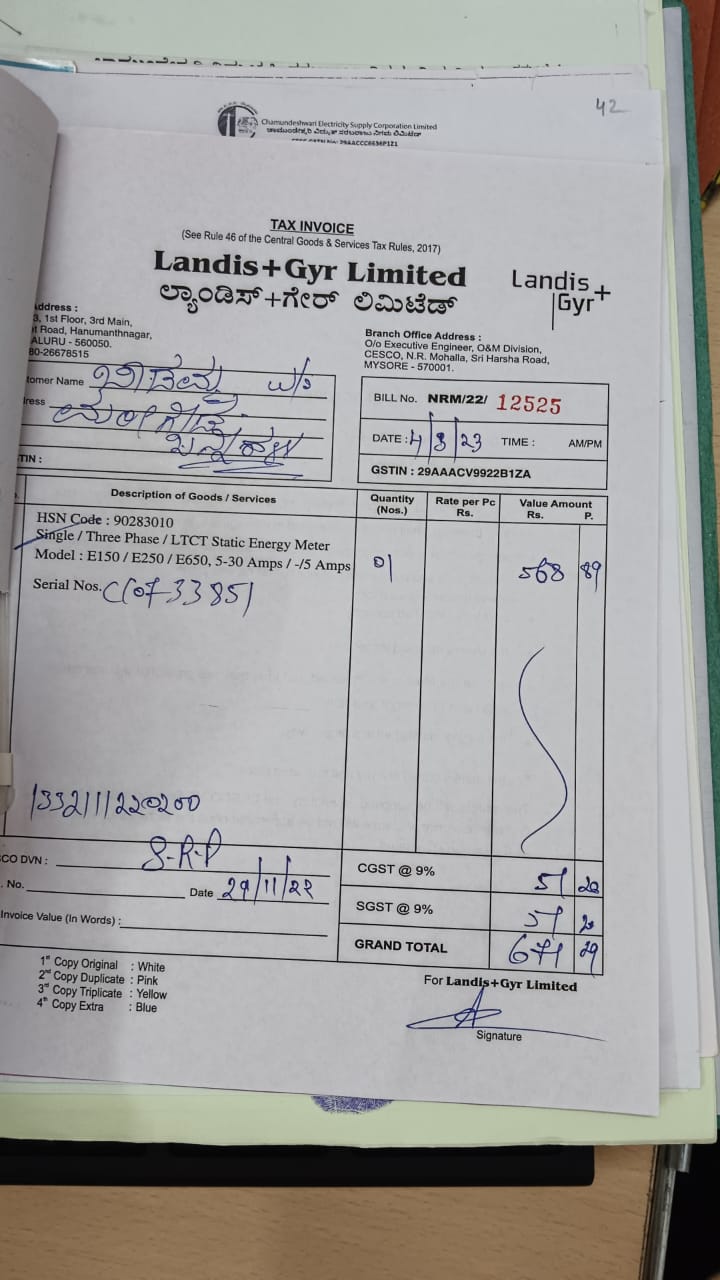 42
Chamundeshwari Electricity Supply Corporation Limited
ಚಾಮುಂಡೇಶ್ವರಿ ವಿದ್ಯುತ್ ಸರಬರಾಜು ನಿಗಮ ಲಿಮಿಟೆಡ್
TAX INVOICE
(See Rule 46 of the Central Goods & Services Tax Rules, 2017)
Landis+Gyr Limited
ಲ್ಯಾಂಡಿಸ್+ಗೇರ್ ಲಿಮಿಟೆಡ್
Landis+
Gyr
Address :
3, 1st Floor, 3rd Main,
t Road, Hanumanthnagar,
ALURU - 560050.
80-26678515
Branch Office Address :
O/o Executive Engineer, O&M Division,
CESCO, N.R. Mohalla, Sri Harsha Road,
MYSORE - 570001.
tomer Name
ress
TIN :
BILL No. NRM/22/ 12525
DATE : 4/8/23 TIME : AM/PM
GSTIN : 29AAACV9922B1ZA
Description of Goods / Services Quantity (Nos.) Rate per Pc Rs. Value Amount Rs. P.
HSN Code : 90283010
Single / Three Phase / LTCT Static Energy Meter
Model : E150 / E250 / E650, 5-30 Amps / -/5 Amps 01 568 89
Serial Nos.
133211220200
CO DVN : S-R-P
. No. Date 29/11/22
Invoice Value (In Words) :
CGST @ 9% 51 20
SGST @ 9% 51 20
GRAND TOTAL 671 29
1st Copy Original : White
2nd Copy Duplicate : Pink
3rd Copy Triplicate : Yellow
4th Copy Extra : Blue
For Landis+Gyr Limited
Signature